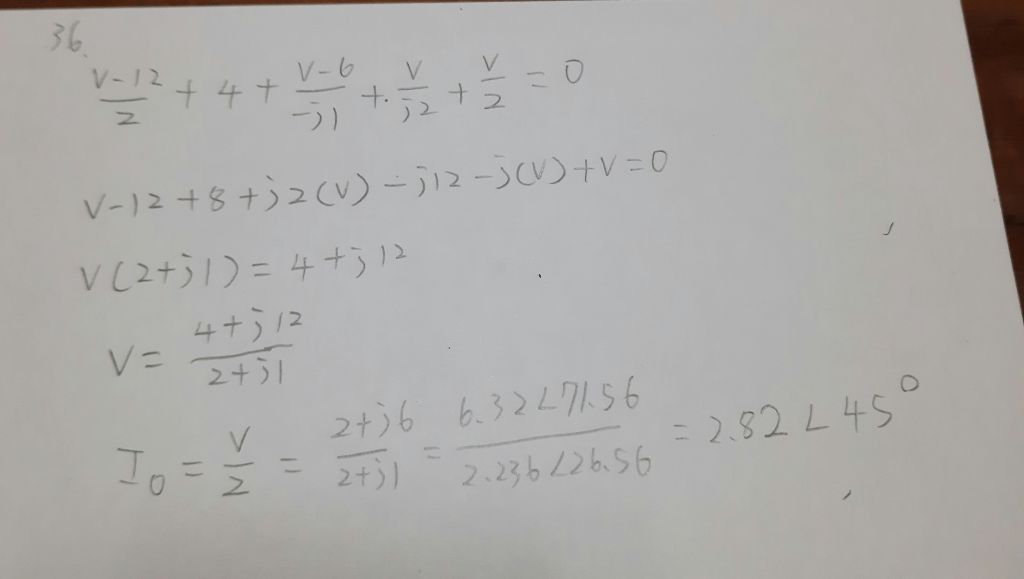 36.
(V-12)/2 + 4 + (V-6)/(-j1) + V/(j2) + V/2 = 0
V-12+8+j2(V)-j12-j(V)+V=0
V(2+j1)=4+j12
V= (4+j12)/(2+j1)
I₀ = V/2 = (2+j6)/(2+j1) = (6.32∠71.56)/(2.236∠26.56) = 2.82∠45°